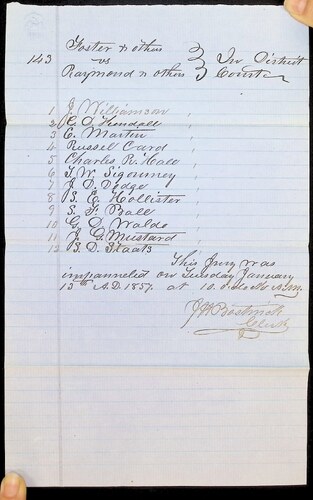 143 Foster & others
vs
Raymond & others
In District
Court
1 J. Williamson
2 C. O. Kendall
3 E. Martin
4 Russel Card
5 Charles R. Hale
6 T. W. Sigourney
7 J. D. Dodge
8 S. E. Hollister
9 S. F. Ball
10 G. D. Waldo
11 J. G. Mustard
12 S. D. Staats
This Jury was
impanneled on Tuesday January
13th A.D. 1857. at 10. O'clk A.M.
Bostwick
Clerk